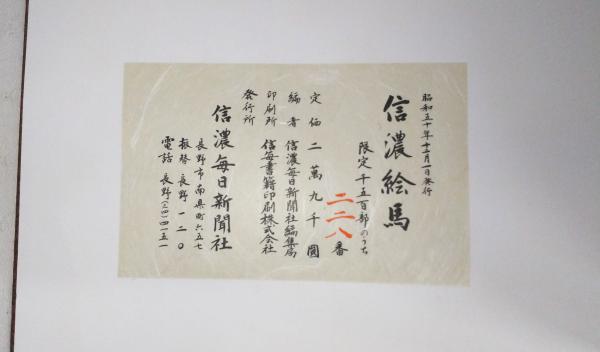 昭和五十年十二月一日発行
信濃絵馬
限定千五百部のうち
二二八番
定価二萬九千圓
編者 信濃毎日新聞社編集局
印刷所 信毎書籍印刷株式会社
発行所
信濃毎日新聞社
長野市南県町六五七
振替長野一二〇
電話 長野(三四)四一五一